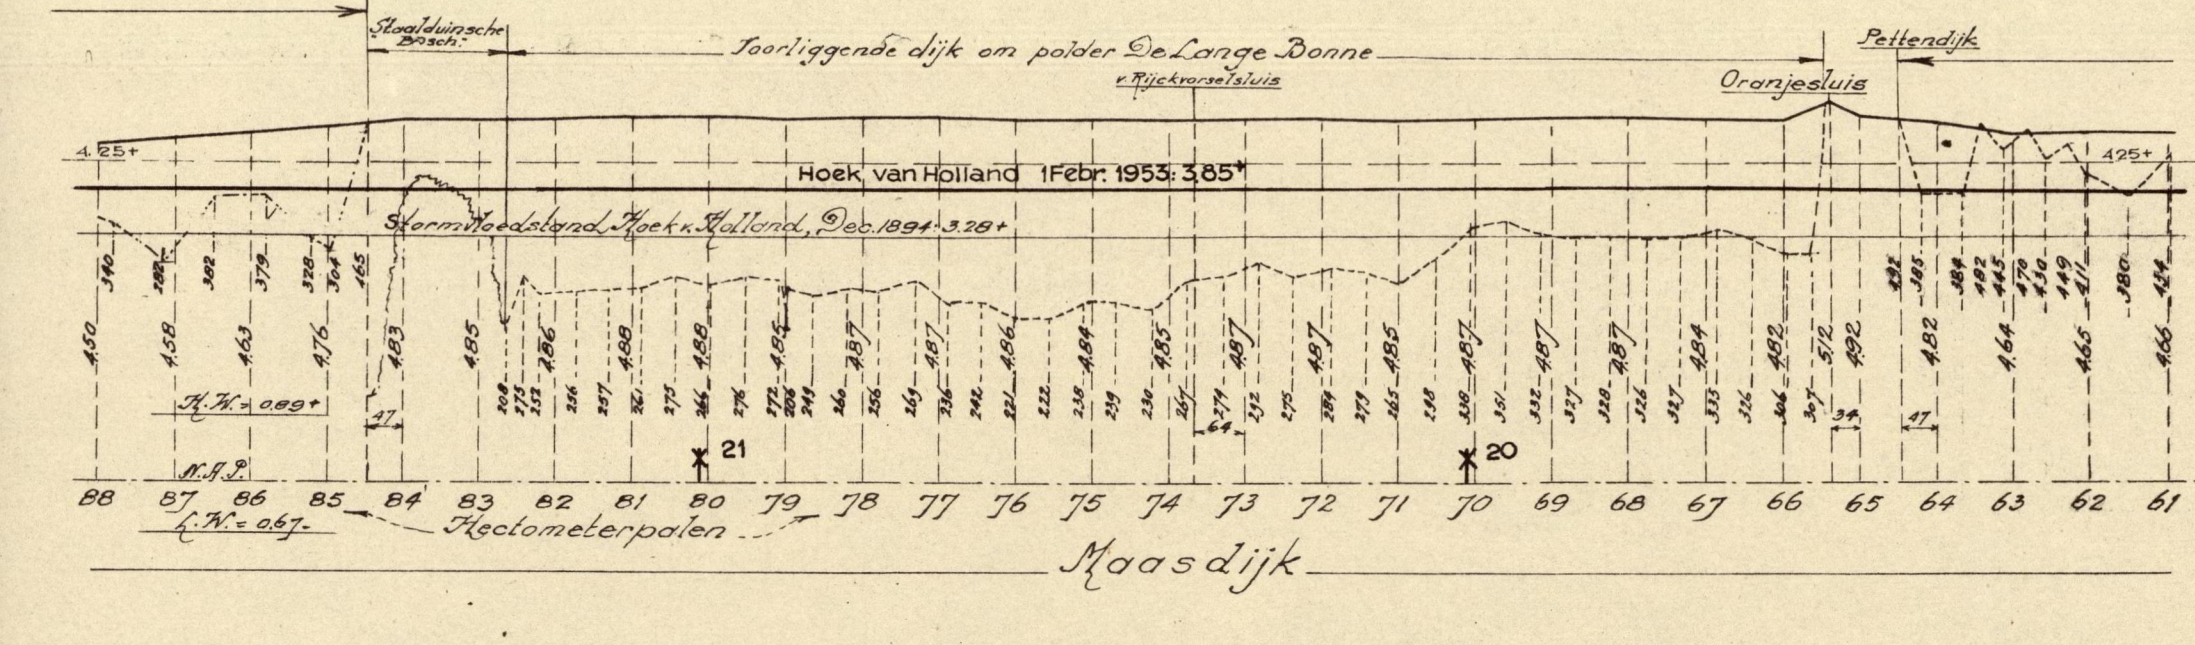 Staalduinsche
Bosch.
Voorliggende dijk om polder De Lange Bonne
v. Rijckvorselsluis
Oranjesluis
Pettendijk
4.25+
Hoek van Holland 1 Febr. 1953: 3.85+
425+
Stormvloedstand Hoek v. Holland, Dec. 1894: 3.28+
340 282 382 379 328 304 465
492 385 384 482 445 470 430 449 411 380 434
4.50 4.58 4.63 4.76 4.83 4.85 4.86 4.88 4.88 4.85 4.87 4.87 4.86 4.84 4.85 4.87 4.87 4.85 4.87 4.87 4.87 4.84 4.82 5.12 4.92 4.82 4.64 4.65 4.66
208 275 252 256 257 261 275 266 276 272 206 249 260 256 269 236 242 221 222 238 239 230 267 274 292 275 284 273 265 298 338 351 332 327 328 326 327 333 326 306 307
H.W. = 0.89+
47 64 34 47
21 20
N.A.P.
88 87 86 85 84 83 82 81 80 79 78 77 76 75 74 73 72 71 70 69 68 67 66 65 64 63 62 61
L.W. = 0.67-
Hectometerpalen
Maasdijk